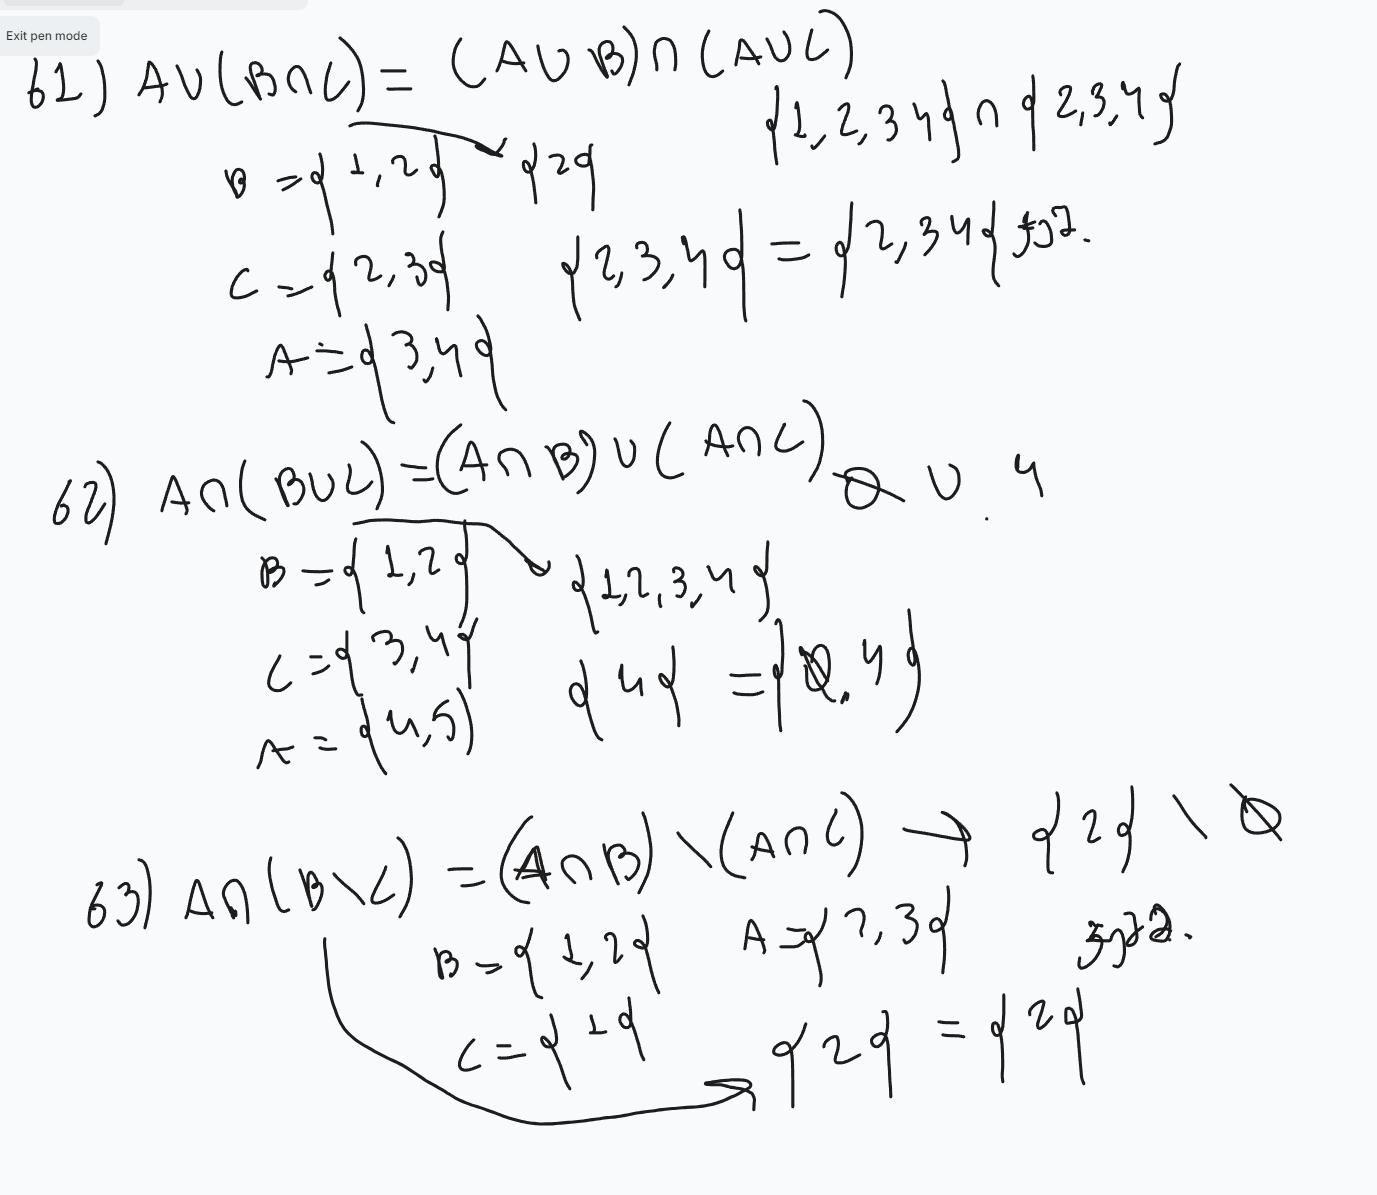 Exit pen mode
61) A∪(B∩C) = (A∪B)∩(A∪C)
{1,2,3 4}∩{2,3,4}
B = {1,2} {2}
C = {2,3} {2,3,4} = {2,3 4}
A = {3,4}
62) A∩(B∪C) = (A∩B)∪(A∩C) ∅ ∪ 4
B = {1,2} {1,2,3,4}
C = {3,4} {4} = {∅, 4}
A = {4,5}
63) A∩(B\C) = (A∩B)\(A∩C) → {2} \ ∅
B = {1,2} A = {2,3}
C = {1} {2} = {2}